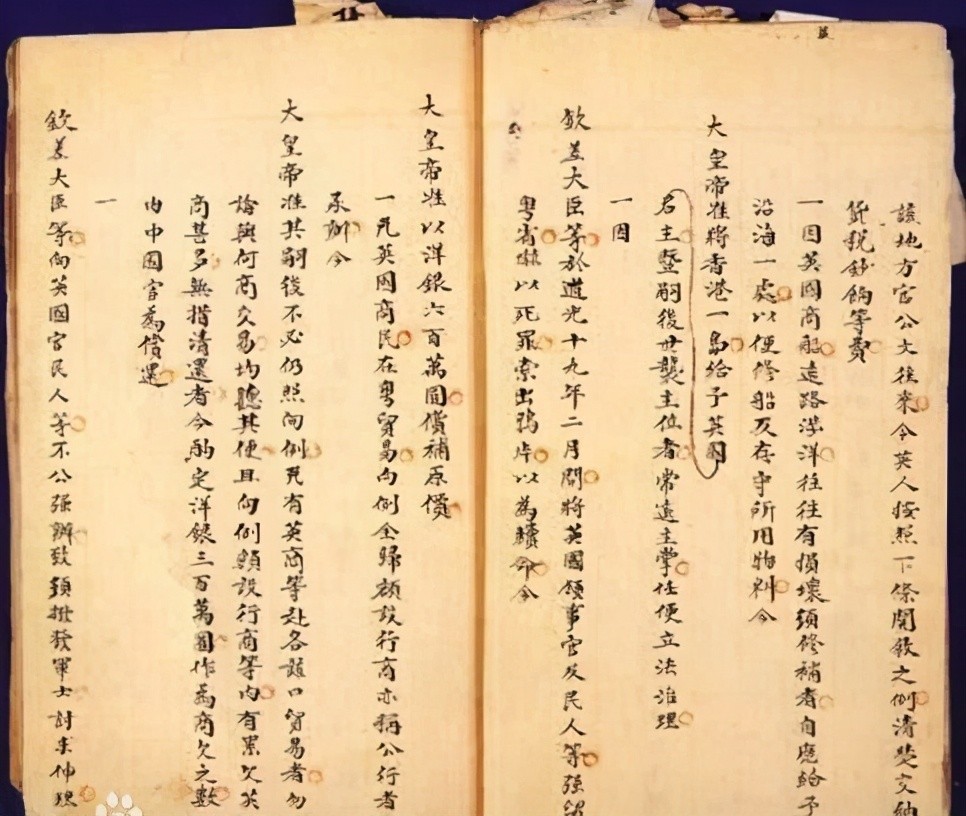 該地方官公文往來令英人按照下條開敘之例清楚交納
貨稅鈔餉等費
一因英國商船遠路涉洋往往有損壞須修補者自應給予
沿海一處以便修船及存守所用物料今
大皇帝准將香港一島給予英國
君主暨嗣後世襲主位者常遠主掌任便立法治理
一因
欽差大臣等於道光十九年二月間將英國領事官及民人等強留
粵省嚇以死罪索出鴉片以為贖命今
大皇帝准以洋銀六百萬圓償補原價
一凡英國商民在粵貿易向例全歸額設行商亦稱公行者
承辦今
大皇帝准其嗣後不必仍照向例凡有英商等赴各該口貿易者勿
論與何商交易均聽其便且向例額設行商等內有累欠英
商甚多無措清還者今酌定洋銀三百萬圓作為商欠之數
內中國官為償還
一
欽差大臣等向英國官民人等不公強辦致須撥發軍士討求伸理